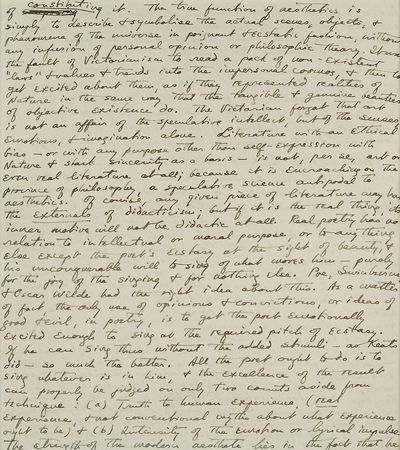 of constituting it. The true function of aesthetics is
simply to describe & symbolise the actual scenes, objects, &
phenomena of the universe in poignant & ecstatic fashion, without
any infusion of personal opinion or philosophic theory. It was
the fault of Victorianism to read a pack of non-existent
"laws" & values & trends into the impersonal cosmos, & then to
get excited about them, as if they represented realities of
Nature in the same way that the tangible & genuine beauties
of objective existence do. The Victorian forgot that art
is not an affair of the speculative intellect but of the senses,
emotions, & imagination alone. Literature with an ethical
bias—or with any purpose other than self-expression with
Nature & stark sincerity as a basis—is not, per se, art or
even real literature at all; because it is encroaching on the
province of philosophy, a speculative science antipodal to
aesthetics. Of course, any given piece of literature may have
the externals of didacticism; but if it is the real thing, its
inner motive will not be didactic at all. Real poetry has no
relation to intellectual or moral purpose, or to anything
else except the poet's ecstasy at the sight of beauty, &
his unconquerable will to sing of what moves him—purely
for the joy of the singing & for nothing else. Poe, Swinburne,
& Oscar Wilde had the right idea about this. As a matter
of fact, the only use of opinions & convictions, or ideas of
good & evil, in poetry, is to get the poet emotionally
excited enough to sing at the required pitch of ecstasy.
If he can sing thus without the added stimuli—as Keats
did—so much the better. All the poet ought to do is to
sing whatever is in him, & the excellence of the result
can properly be judged on only two counts aside from
technique: (a) Truth to human experience, (real
experience, & not conventional myths about what experience
ought to be) & (b) Intensity of the emotion or lyrical impulse.
The strength of the modern aesthete lies in the fact that he